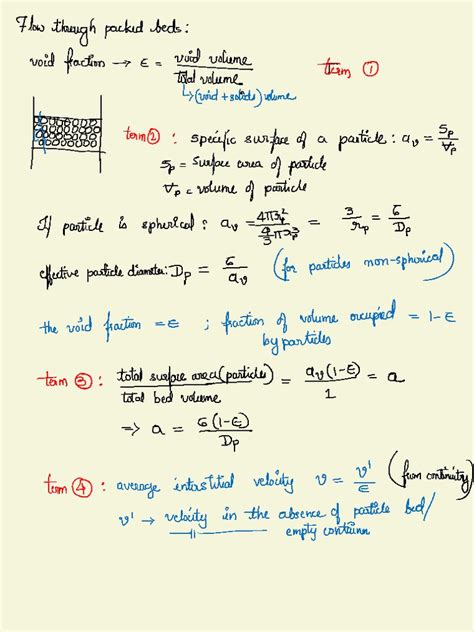 Flow through packed beds:
void fraction → ϵ = void volume / total volume term ①
↳ (void + solids) volume
term ② : specific surface of a particle : a_v = S_p / V_p
S_p = Surface area of particle
V_p = volume of particle
If particle is spherical : a_v = 4πr_p² / (4/3 πr_p³) = 3 / r_p = 6 / D_p
effective particle diameter: D_p = 6 / a_v (for particles non-spherical)
the void fraction = ϵ ; fraction of volume occupied by particles = 1-ϵ
term ③ : total surface area (particles) / total bed volume = a_v(1-ϵ) / 1 = a
⇒ a = 6(1-ϵ) / D_p
term ④ : average interstitial velocity v = v' / ϵ (from continuity)
v' → velocity in the absence of particle bed/
empty container